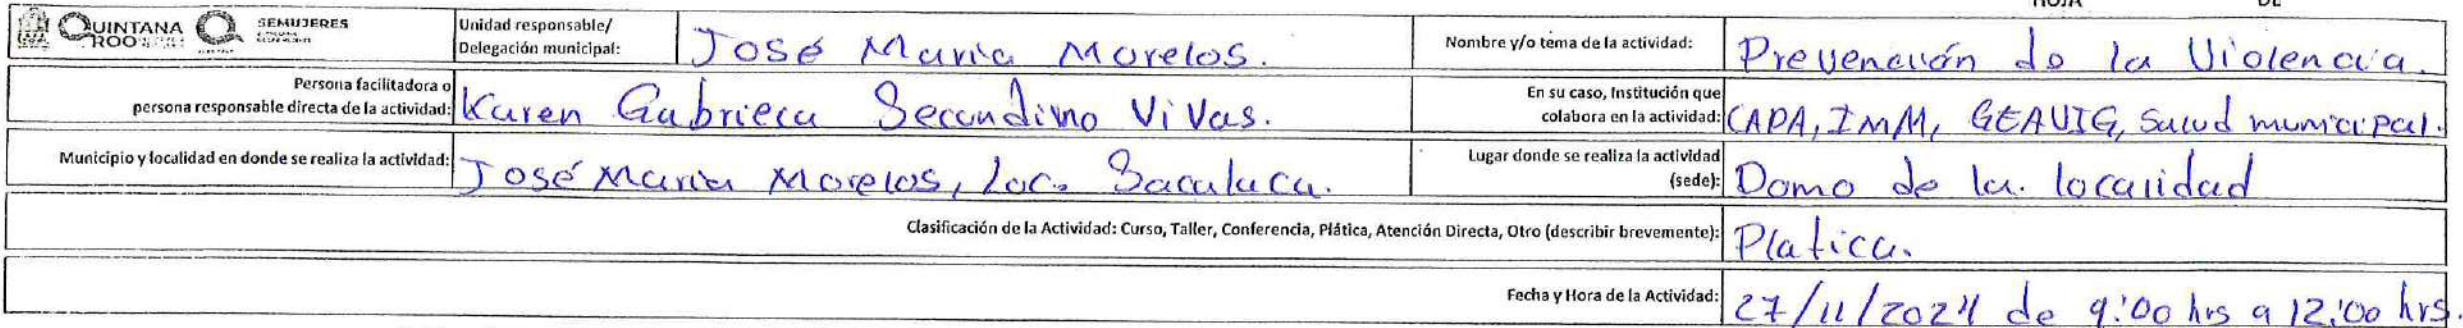 HOJA DE
QUINTANA ROO SEMUJERES Unidad responsable/ Delegación municipal: José Maria Morelos. Nombre y/o tema de la actividad: Prevención de la Violencia.
Persona facilitadora o persona responsable directa de la actividad: Karen Gabriela Secundino Vivas. En su caso, Institución que colabora en la actividad: CAPA, IMM, GEAVIG, Salud municipal.
Municipio y localidad en donde se realiza la actividad: José Maria Morelos, Loc. Sacalaca. Lugar donde se realiza la actividad (sede): Domo de la. localidad
Clasificación de la Actividad: Curso, Taller, Conferencia, Plática, Atención Directa, Otro (describir brevemente): Platica.
Fecha y Hora de la Actividad: 27/11/2024 de 9:00 hrs a 12:00 hrs